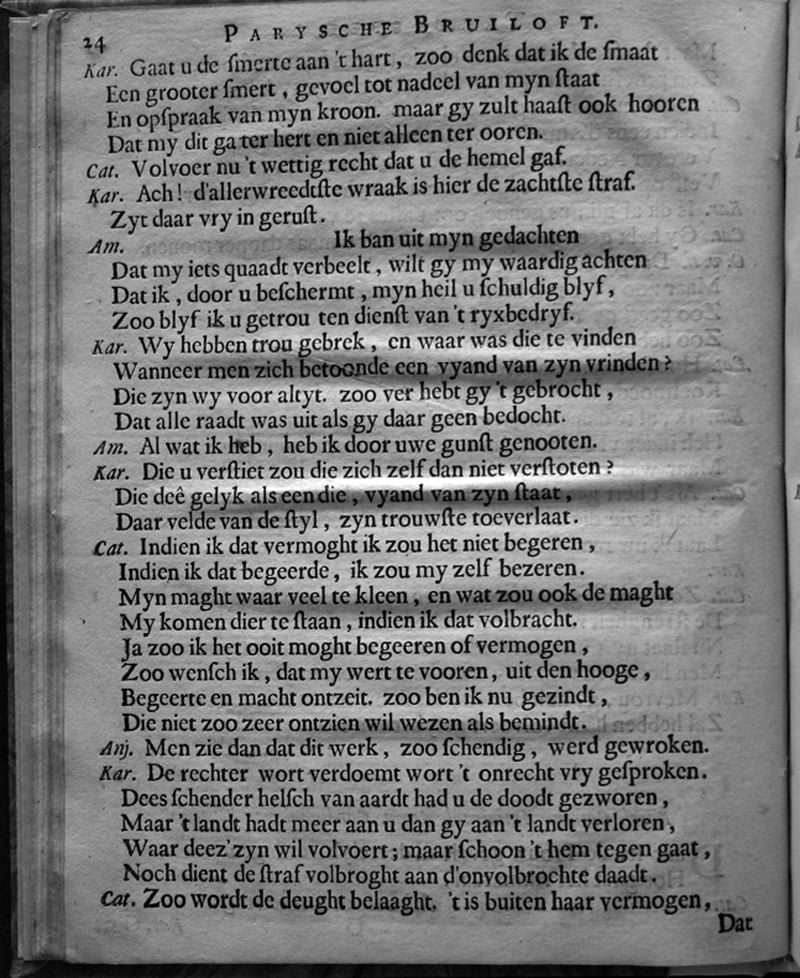 24 PARYSCHE BRUILOFT.
Kar. Gaat u de ſmerte aan 't hart, zoo denk dat ik de ſmaat
Een grooter ſmert, gevoel tot nadeel van myn ſtaat
En opſpraak van myn kroon. maar gy zult haaſt ook hooren
Dat my dit ga ter hert en niet alleen ter ooren.
Cat. Volvoer nu 't wettig recht dat u de hemel gaf.
Kar. Ach! d'allerwreedtſte wraak is hier de zachtſte ſtraf.
Zyt daar vry in geruſt.
Am. Ik ban uit myn gedachten
Dat my iets quaadt verbeelt, wilt gy my waardig achten
Dat ik, door u beſchermt, myn heil u ſchuldig blyf,
Zoo blyf ik u getrou ten dienſt van 't ryxbedryf.
Kar. Wy hebben trou gebrek, en waar was die te vinden
Wanneer men zich betoonde een vyand van zyn vrinden?
Die zyn wy voor altyt. zoo ver hebt gy 't gebrocht,
Dat alle raadt was uit als gy daar geen bedocht.
Am. Al wat ik heb, heb ik door uwe gunſt genooten.
Kar. Die u verſtiet zou die zich zelf dan niet verſtoten?
Die deê gelyk als een die, vyand van zyn ſtaat,
Daar velde van de ſtyl, zyn trouwſte toeverlaat.
Cat. Indien ik dat vermoght ik zou het niet begeren,
Indien ik dat begeerde, ik zou my zelf bezeren.
Myn maght waar veel te kleen, en wat zou ook de maght
My komen dier te ſtaan, indien ik dat volbracht.
Ja zoo ik het ooit moght begeeren of vermogen,
Zoo wenſch ik, dat my wert te vooren, uit den hooge,
Begeerte en macht ontzeit. zoo ben ik nu gezindt,
Die niet zoo zeer ontzien wil wezen als bemindt.
Anj. Men zie dan dat dit werk, zoo ſchendig, werd gewroken.
Kar. De rechter wort verdoemt wort 't onrecht vry geſproken.
Dees ſchender helſch van aardt had u de doodt gezworen,
Maar 't landt hadt meer aan u dan gy aan 't landt verloren,
Waar deez' zyn wil volvoert; maar ſchoon 't hem tegen gaat,
Noch dient de ſtraf volbroght aan d'onvolbrochte daadt.
Cat. Zoo wordt de deught belaaght. 't is buiten haar vermogen,
Dat